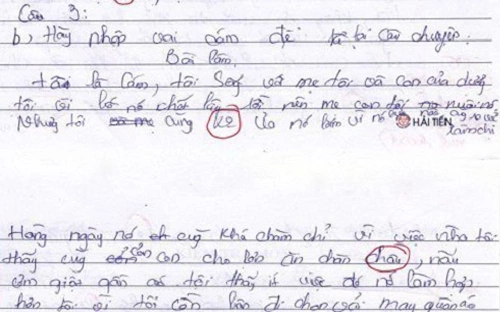 Câu 3:
b, Hãy nhập vai cám để kể lại câu chuyện.
Bài làm.
tôi là Cám, tôi sống với mẹ tôi và con của dượng
tôi vì bố nó chết lên nên mẹ con tôi nuôi nó
Nhưng tôi cũng ko nó lắm vì nó
HẢI TIẾN
làm chị
Hằng ngày nó cũg khá chăm chỉ với việc nhà tôi
thấy cũg còn cho lợn ăn chăn châu, nấu
cơm giặt quần áo tôi thấy việc đó nó làm hợp
hơn tôi vì tôi còn bận đi chọn vải may quần áo